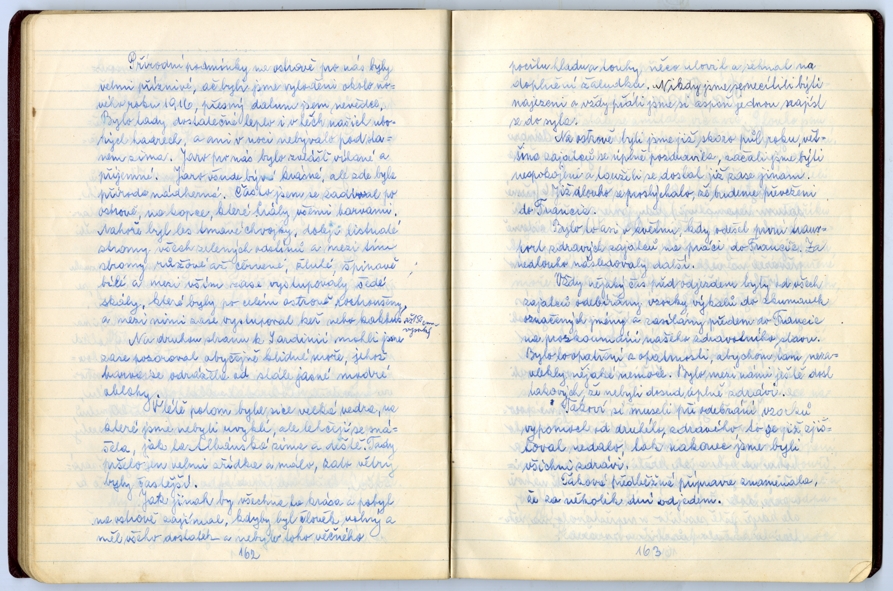 Přírodní podmínky na ostrově pro nás byly
velmi příznivé, ač byli jsme vyloděni okolo no-
vého roku 1916, přesný datum jsem nevěděl,
Bylo tady dostatečně teplo i v těch našich ubo-
hých hadrech, a ani v noci nebývalo pod sta-
nem zima. Jaro pro nás bylo zvlášť vítané a
příjemné. Jaro všude bývá krásné, ale zde byla
příroda nádherná. Často jsem se zadíval po
ostrově, na kopce, které hrály všemi barvami.
Nahoře byl les tmavé chvojky, doleji listnaté
stromy všech zelených odstínů a mezi tím
stromy růžové až červené, žluté, špinavě
bílé a mezi vším zase vystupovaly šedé
skály, které byly po celém ostrově
a mezi nimi zase vystupoval keř nebo kaktus
až 150 cm
vysoký
Na druhou stranu k Sardinii mohli jsme
zase pozorovat obyčejně klidné moře, jehož
barva se odrážela od stále jasné modré
oblohy.
V létě potom byla sice velká vedra, na
která jsme nebyli zvyklí, ale lehčeji se sná-
šela, jak ta Albánská zima a deště. Tady
pršelo jen velmi zřídka a málo, zato větry
byly častější.
Jak jinak by všechna ta krása a pobyt
na ostrově zajímal, kdyby byl člověk volný a
měl všeho dostatek a nebylo toho věčného
162
pocitu hladu a touhy, něco ulovit a sehnat na
doplnění žaludku. Nikdy jsme se necítili býti
najezeni a vždy přáli jsme si aspoň jednou najíst
se do syta.
Na ostrově byli jsme již skoro půl roku, vět-
šina zajatců se úplně pozdravila, začali jsme býti
nespokojni a toužili se dostat již zase jinam.
Již dlouho se proslýchalo, že budeme převezeni
do Francie.
Bylo to asi v květnu, kdy odešel první trans-
port zdravých zajatců na práci do Francie. Za
nedlouho následovaly další.
Vždy nějaký čas před odjezdem byly od všech
zajatců odebírány vzorky výkalů do zkumavek
označených jmény a zasílány předem do Francie
na prozkoumání našeho zdravotního stavu.
Bylo to opatrnost a opatrnosti, abychom tam neza-
vlekli nějaké nemoce. Bylo mezi námi ještě dost
takových, že nebyli dosud úplně zdrávi.
Takoví si museli při odebírání vzorků
vypomoci od druhého, zdravého, to se již zjiš-
ťovat nedalo, tak nakonec jsme byli
všichni zdraví.
Taková předběžná příprava znamenala,
že za několik dní odjedem.
163